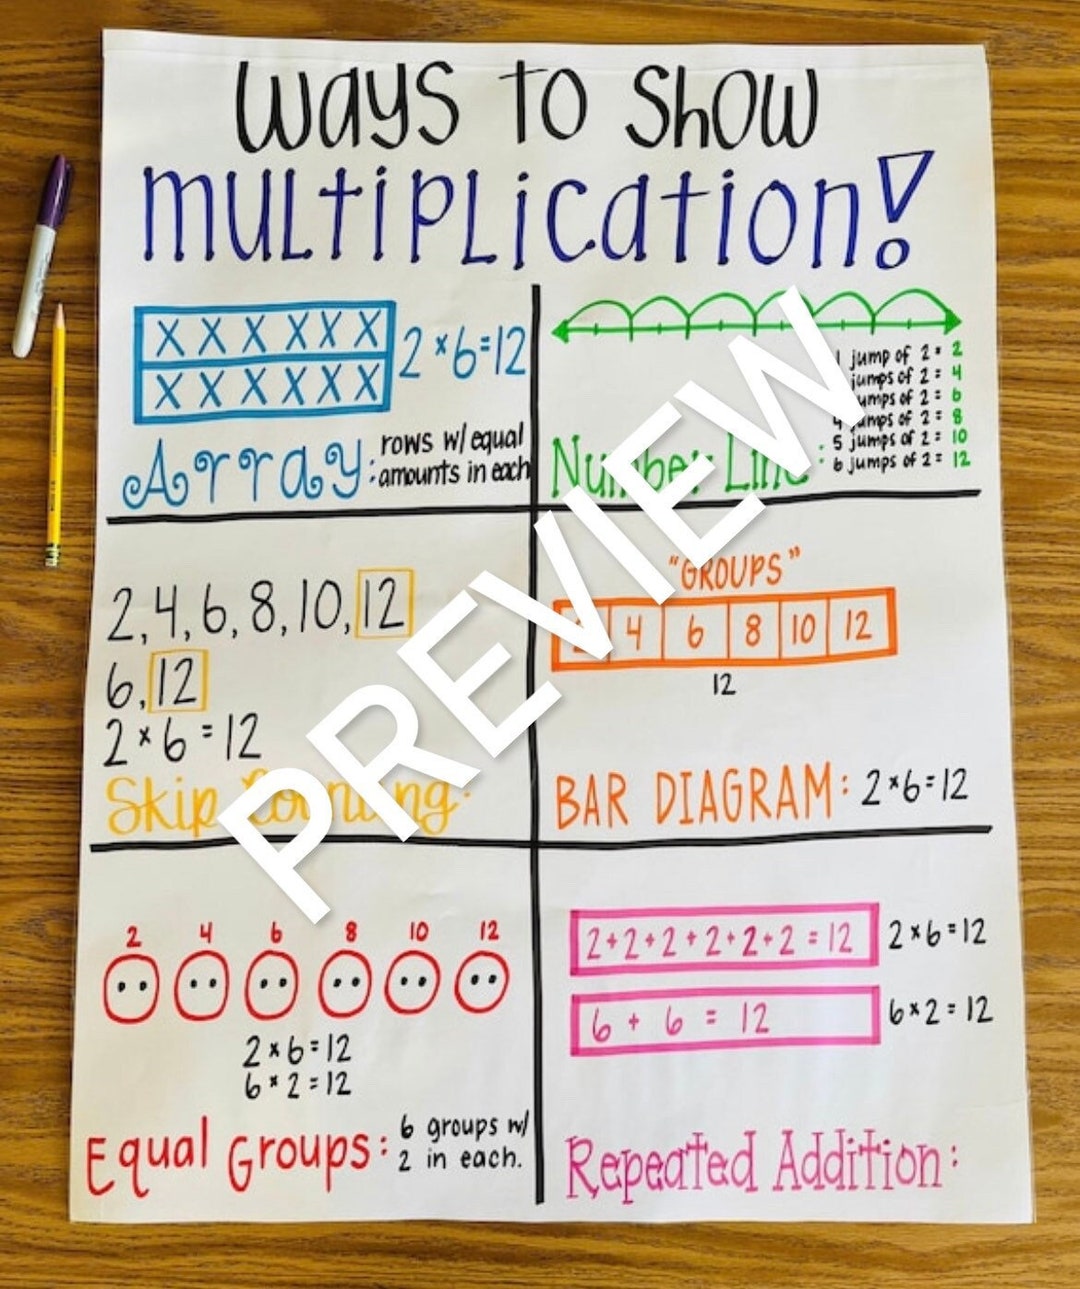 Ways to Show
Multiplication!
X X X X X X
X X X X X X
2 × 6 = 12
Array: rows w/ equal
amounts in each
1 jump of 2 = 2
jumps of 2 = 4
jumps of 2 = 6
4 jumps of 2 = 8
5 jumps of 2 = 10
6 jumps of 2 = 12
Number Line:
2, 4, 6, 8, 10, 12
6, 12
2 × 6 = 12
Skip Counting:
"GROUPS"
2 4 6 8 10 12
12
BAR DIAGRAM: 2 × 6 = 12
2 4 6 8 10 12
2 × 6 = 12
6 × 2 = 12
Equal Groups: 6 groups w/
2 in each.
2+2+2+2+2+2 = 12 2 × 6 = 12
6 + 6 = 12 6 × 2 = 12
Repeated Addition:
PREVIEW